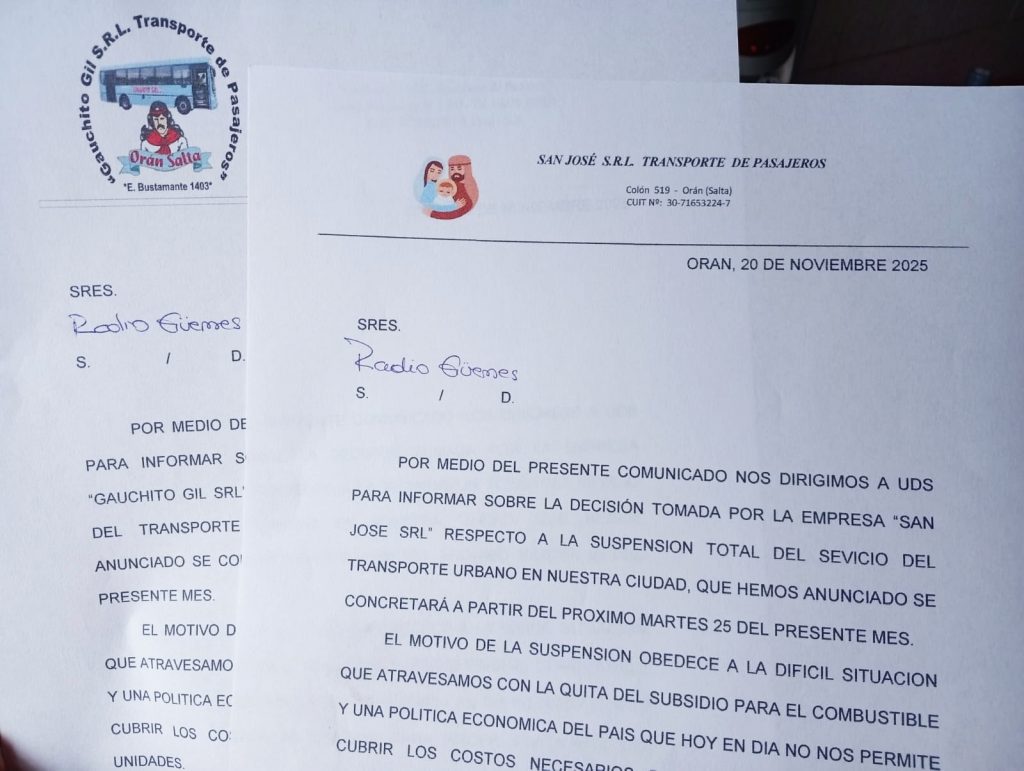 "Gauchito Gil S.R.L. Transporte de Pasajeros"
GAUCHITO GIL
Orán Salta
"E. Bustamante 1403"
SRES.
Radio Güemes
S. / D.
POR MEDIO DE
PARA INFORMAR S
"GAUCHITO GIL SRL"
DEL TRANSPORTE
ANUNCIADO SE CO
PRESENTE MES.
EL MOTIVO D
QUE ATRAVESAMO
Y UNA POLITICA EC
CUBRIR LOS CO
UNIDADES.
SAN JOSÉ S.R.L. TRANSPORTE DE PASAJEROS
Colón 519 - Orán (Salta)
CUIT Nº: 30-71653224-7
ORAN, 20 DE NOVIEMBRE 2025
SRES.
Radio Güemes
S. / D.
POR MEDIO DEL PRESENTE COMUNICADO NOS DIRIGIMOS A UDS
PARA INFORMAR SOBRE LA DECISIÓN TOMADA POR LA EMPRESA "SAN
JOSE SRL" RESPECTO A LA SUSPENSION TOTAL DEL SEVICIO DEL
TRANSPORTE URBANO EN NUESTRA CIUDAD, QUE HEMOS ANUNCIADO SE
CONCRETARÁ A PARTIR DEL PROXIMO MARTES 25 DEL PRESENTE MES.
EL MOTIVO DE LA SUSPENSION OBEDECE A LA DIFICIL SITUACION
QUE ATRAVESAMOS CON LA QUITA DEL SUBSIDIO PARA EL COMBUSTIBLE
Y UNA POLITICA ECONOMICA DEL PAIS QUE HOY EN DIA NO NOS PERMITE
CUBRIR LOS COSTOS NECESARIOS